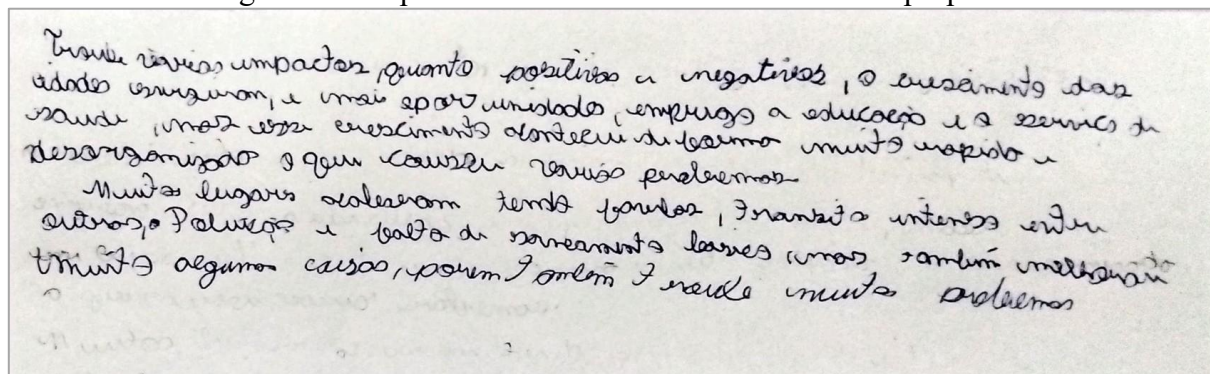 Trouxe vários impactos, quanto positivos e negativos, o cresimento das
cidades surgiram, e mais oportunidades, emprego a educação e o serviço de
saude, mas esse crescimento aconteceu de forma muito rapida e
desorganizada o que causou varios problemas
Muitos lugares acaberam tendo favelas, transito intenso entre
outros, a Poluição e falta de saneamento basico, mas também melhoraram
muito algumas coisas, porem também trouxe muitos problemas